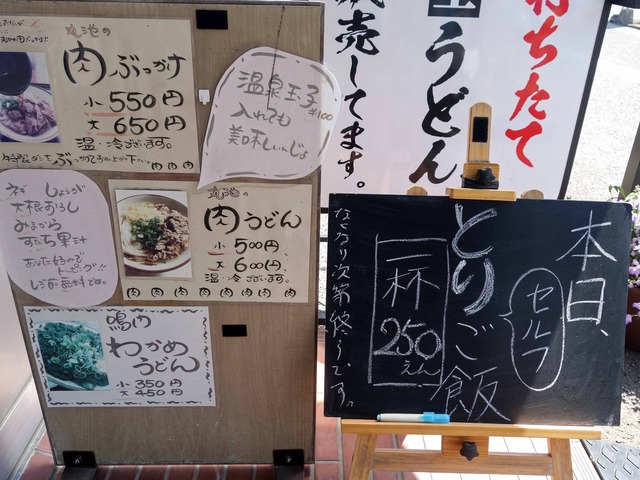 丸池の
肉ぶっかけ
小 550円
大 650円
温・冷ございます。
ぶっかけてお召し上がり下さい
肉 肉 肉
温泉玉子
¥100
入れても
美味しいじょ
ネギ しょうが
大根おろし
みまから
すだち果汁
あなた好みで
トッピング!!
しょうが無料です。
丸池の
肉うどん
小 500円、
大 600円、
温・冷ございます。
肉 肉 肉 肉 肉 肉 肉 肉
鳴門
わかめ
うどん
小 350円
大 450円
打ちたて
うどん
販売してます。
本日、
セルフ
とりご飯
一杯
250
えん
なくなり次第終了です。